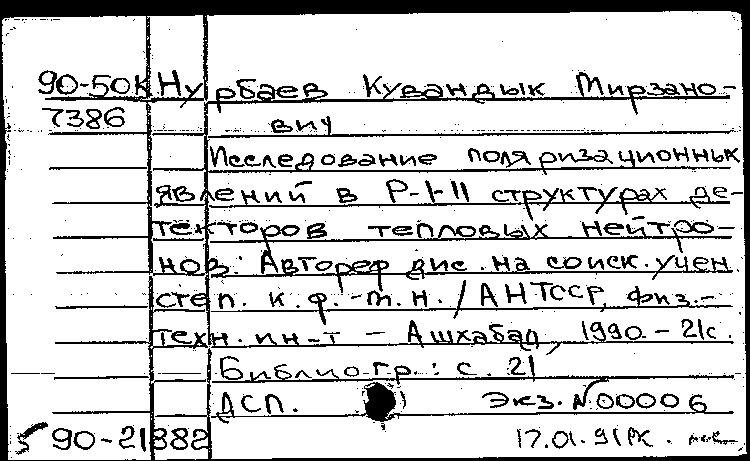 90-50К Нурбаев Кувандык Мирзано-
7386 вич
Исследование поляризационных
явлений в P-I-II структурах де-
текторов тепловых нейтро-
нов: Автореф дис. на соиск. учен
степ. к.ф.-т.н. / АНТССР, физ.-
техн. ин-т - Ашхабад, 1990. - 21с.
Библиогр.: с. 21
ДСП. Экз. №00006
90-21882 17.01.91РК.